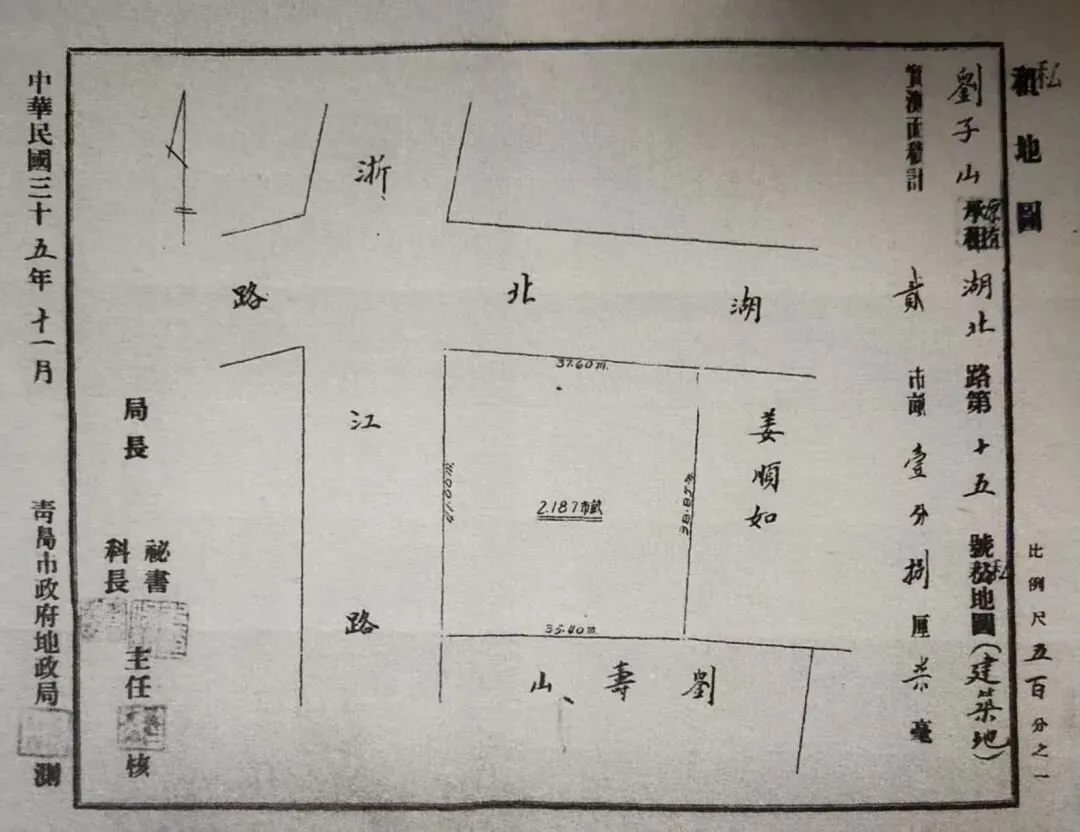 私
租地圖
比例尺五百分之一
劉子山原有湖北路第十五號私地圖(建築地)
實測面積計貳市畝壹分捌厘柒毫
浙江路
湖北路
37.60m.
41.00m.
38.87m.
35.40m.
2.187市畝
姜順如
劉壽山
局長
祕書
科長
主任
核
中華民國三十五年十一月
青島市政府地政局測